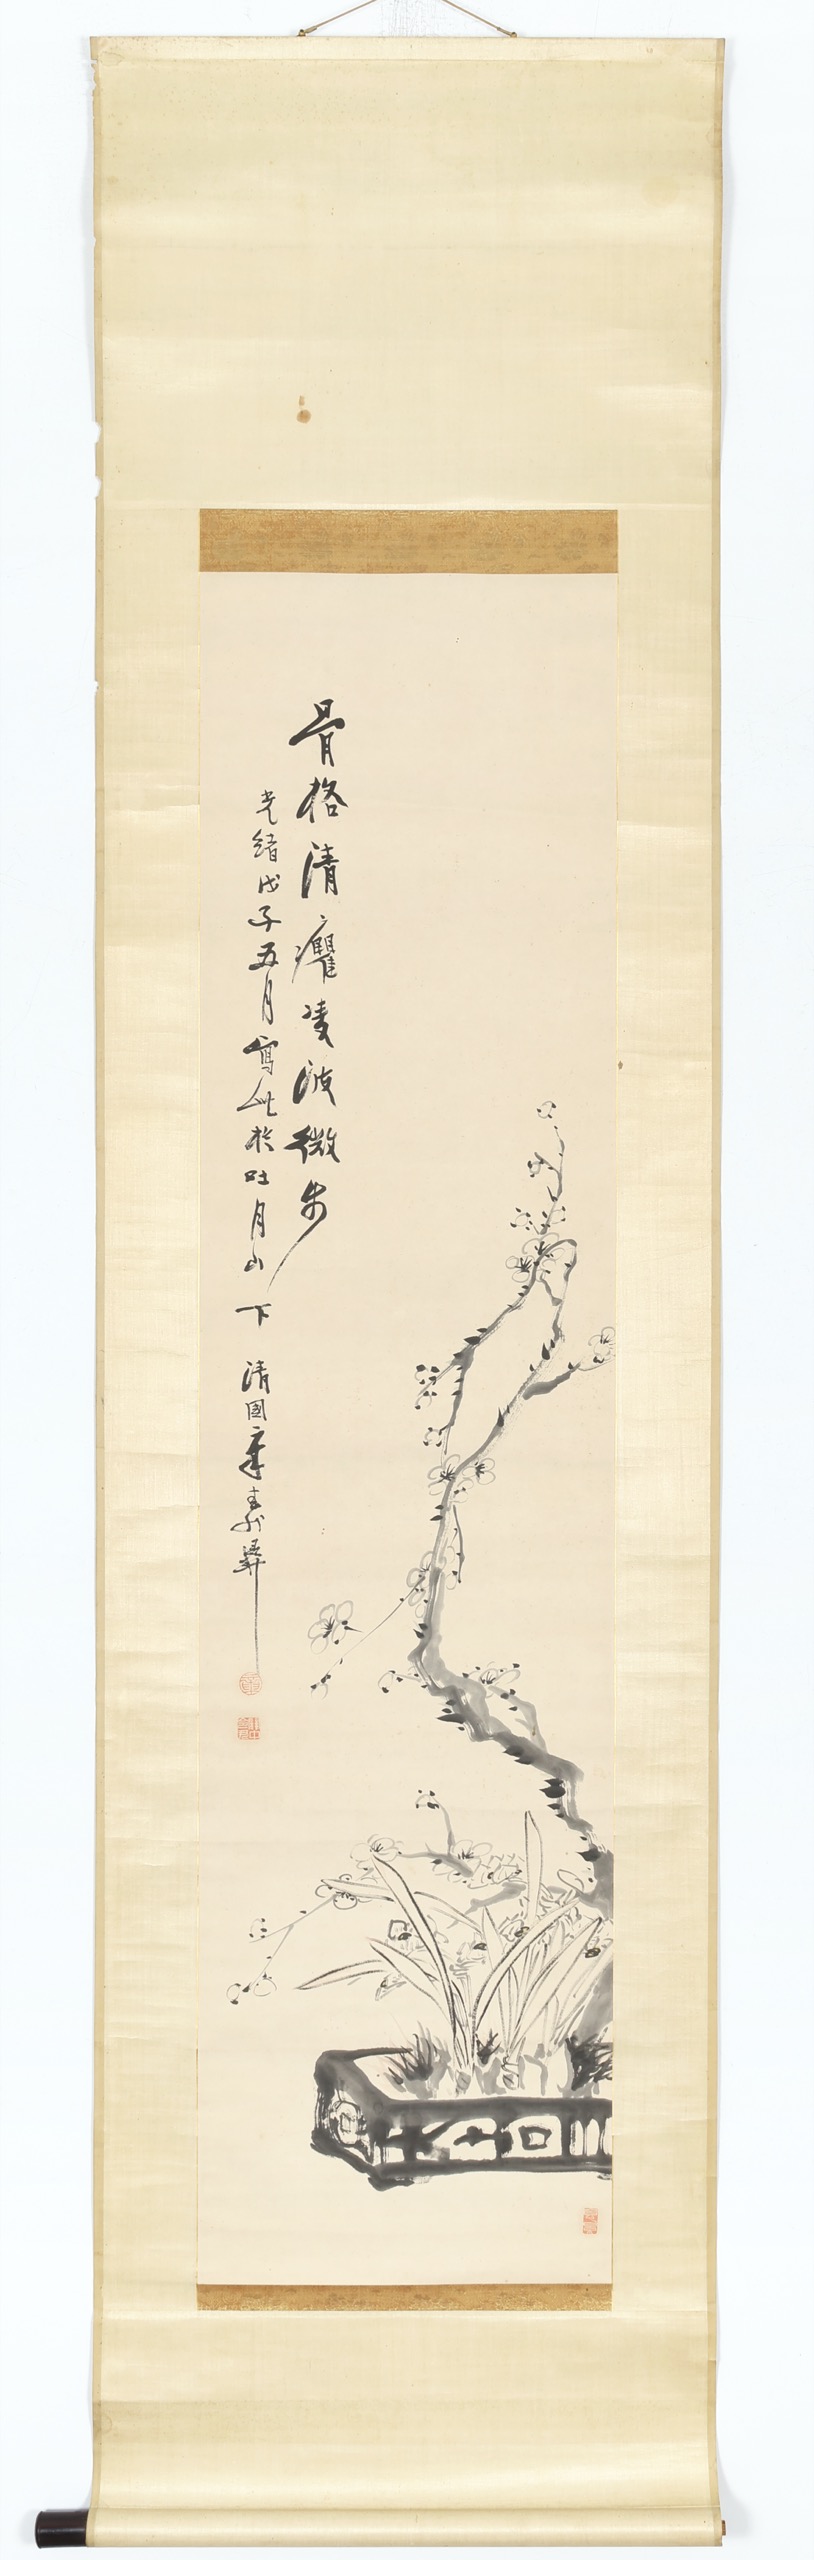 骨格清癯凌波微步
光緒戊子五月寫此於吐月山下
清國章